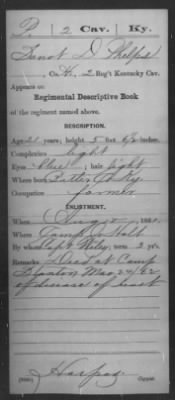 P. 2 Cav. Ky.
D. Phelps
Co. H, 2 Reg't Kentucky Cav.
Appears on
Regimental Descriptive Book
of the regiment named above.
DESCRIPTION.
Age 21 years; height 5 feet 6½ inches.
Complexion light
Eyes Blue; hair light
Where born Butler Co Ky.
Occupation farmer
ENLISTMENT.
When Aug 186 .
Where Camp Jo Holt
By whom Capt Wiley; term 3 y'rs.
Remarks Died at Camp
24/62
of disease of heart
Copyist.